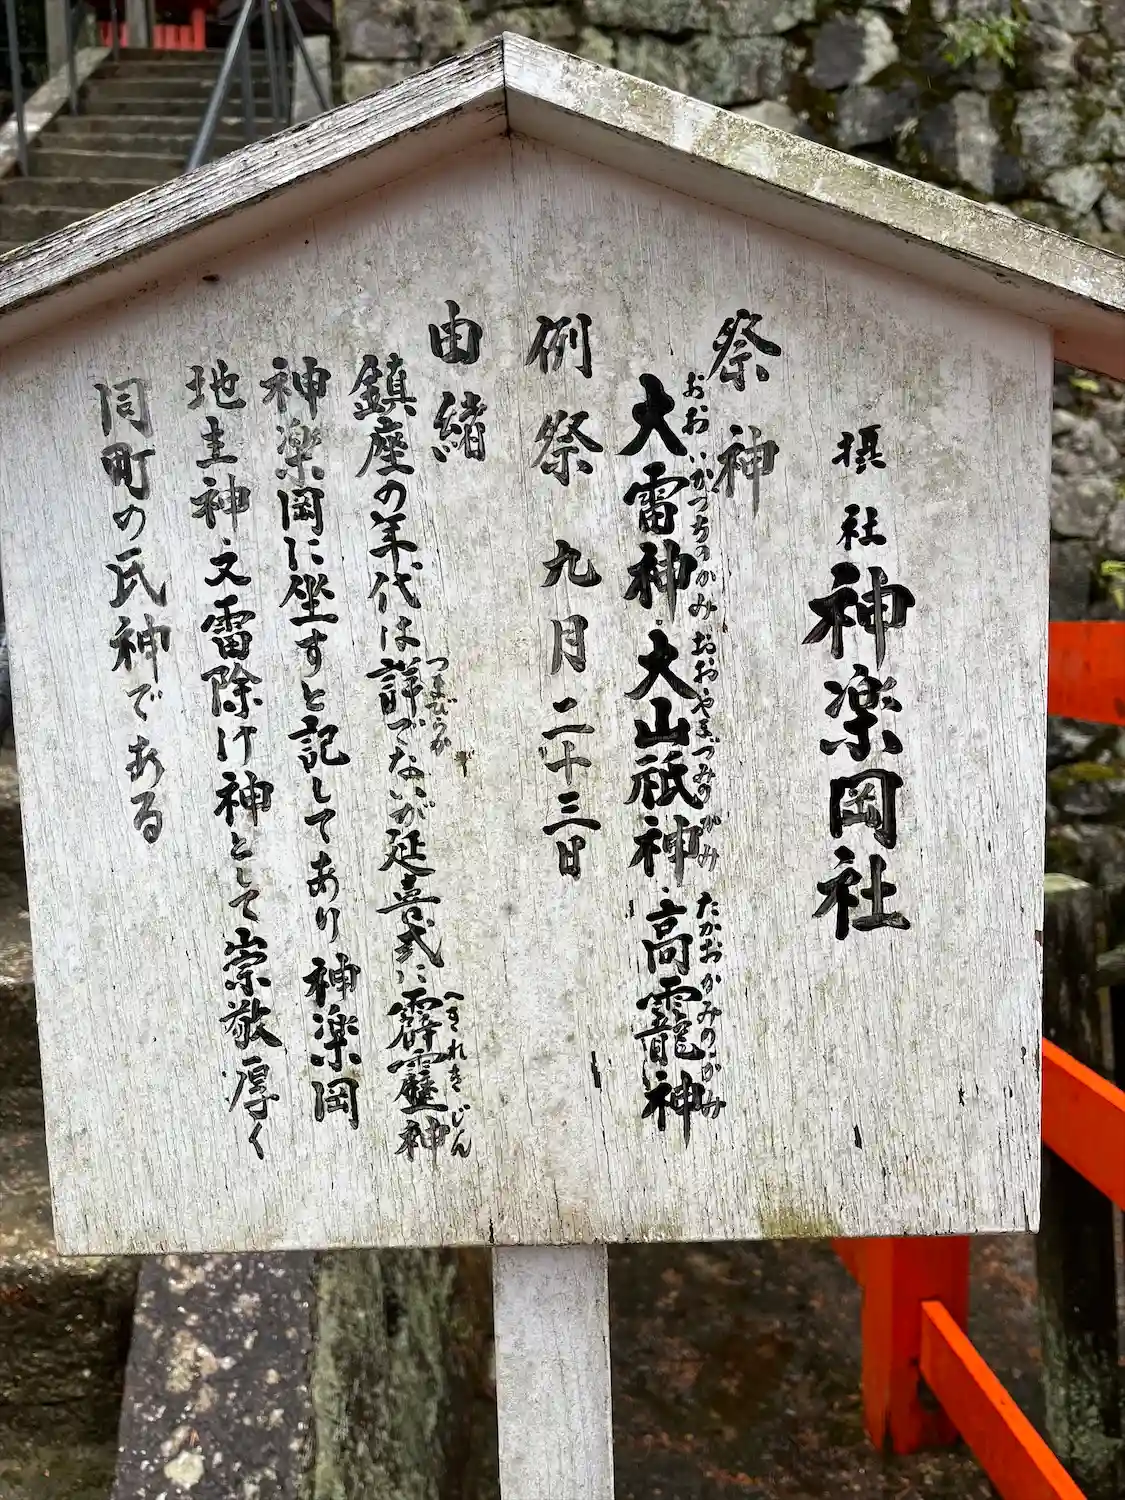 摂社 神楽岡社
祭神
おおいかづちのかみ おおやまづみのかみ たかおかみのかみ
大雷神・大山祇神・高龗神
例祭 九月二十三日
由緒
つまびらか へきれきじん
鎮座の年代は詳でないが延喜式に霹靂神
神楽岡に坐すと記してあり 神楽岡
地主神又雷除け神として崇敬厚く
同町の氏神である